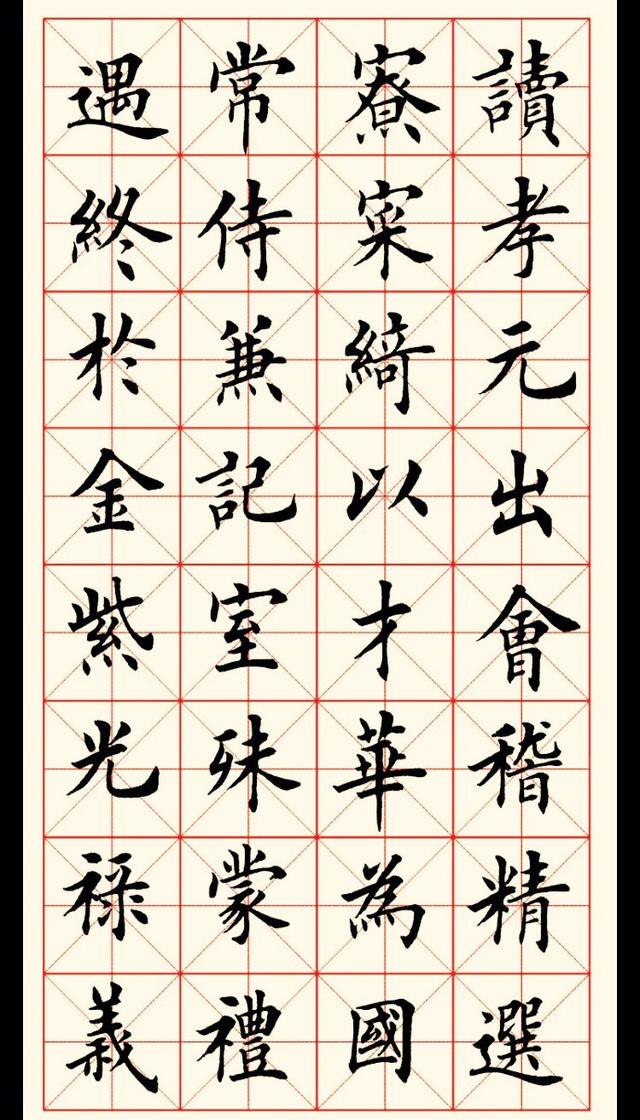 讀孝元出會稽精選
寮寀綺以才華為國
常侍兼記室殊蒙禮
遇終於金紫光祿義